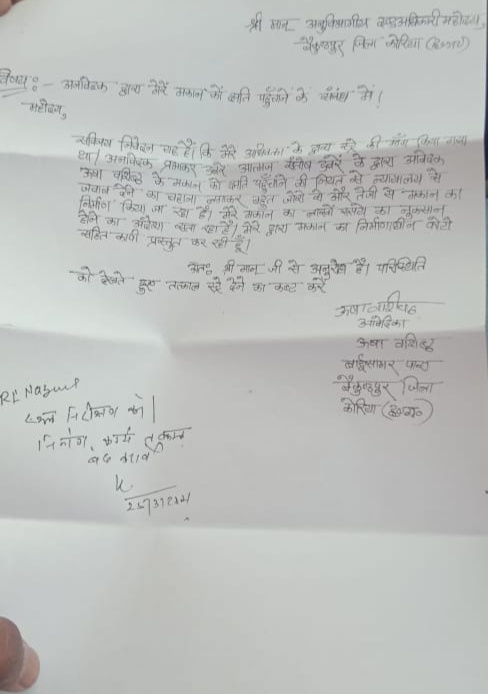 श्री मान अनुविभागीय दण्डाधिकारी महोदय,
बैकुण्ठपुर जिला कोरिया (छ०ग०)
विषय :- अनावेदक द्वारा मेरे मकान को क्षति पहुँचाने के संबंध में।
महोदय,
सविनय निवेदन यह है। कि मेरे अधिवक्ता के द्वारा स्टे की माँग किया गया
था। अनावेदक प्रभाकर और आत्मज संतोष दुबे के द्वारा आवेदक
ऊषा वशिष्ठ के मकान को क्षति पहुँचाने की नियत से न्यायालय में
जवाब देने का बहाना बनाकर बहुत जोरो से और तेजी से मकान का
निर्माण किया जा रहा है। मेरे मकान का लाखो रुपये का नुकसान
होने का अंदेशा बना रहा है। मेरे द्वारा मकान का निर्माणाधीन फोटो
सहित कापी प्रस्तुत कर रही हूँ।
अतः श्री मान जी से अनुरोध है। परिस्थिति
को देखते हुए तत्काल स्टे देने का कष्ट करें
ऊषा वशिष्ठ
आवेदिका
ऊषा वशिष्ठ
बाईसागर पारा
बैकुण्ठपुर जिला
कोरिया (छ०ग०)
RI
स्थल निरीक्षण करे।
निर्माण कार्य तत्काल
बंद करावें